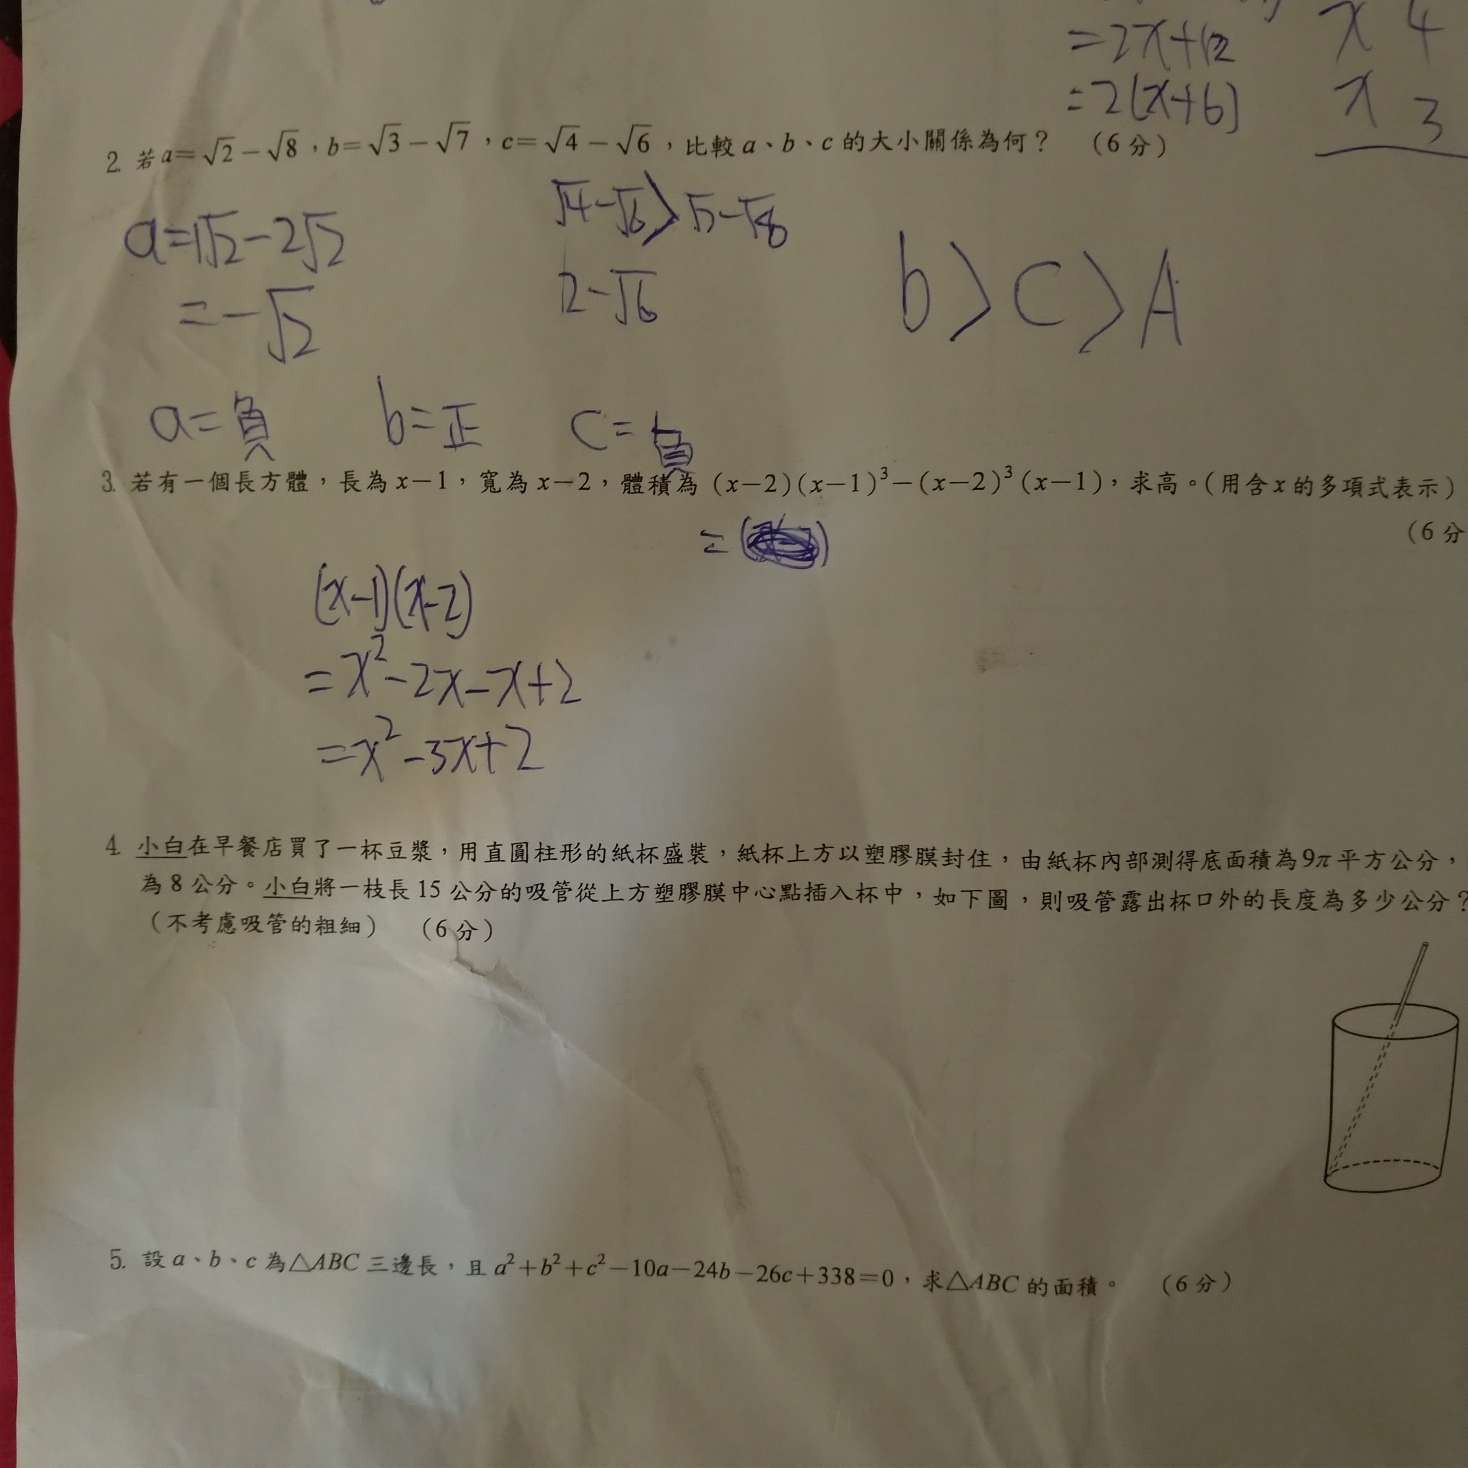 =2x+12
=2(x+6)
x 4
x 3
2. 若a=√2-√8，b=√3-√7，c=√4-√6，比較a、b、c的大小關係為何？ （6分）
a=1√2-2√2
=-√2
√4-√6>√2-√8
2-√6
b>c>A
a=負 b=正 c=負
3. 若有一個長方體，長為x-1，寬為x-2，體積為 (x-2)(x-1)³-(x-2)³(x-1)，求高。（用含x的多項式表示）
（6分
=( )
(x-1)(x-2)
=x²-2x-x+2
=x²-3x+2
4. 小白在早餐店買了一杯豆漿，用直圓柱形的紙杯盛裝，紙杯上方以塑膠膜封住，由紙杯內部測得底面積為9π平方公分，
為8公分。小白將一枝長15公分的吸管從上方塑膠膜中心點插入杯中，如下圖，則吸管露出杯口外的長度為多少公分？
（不考慮吸管的粗細） （6分）
5. 設a、b、c為△ABC三邊長，且a²+b²+c²-10a-24b-26c+338=0，求△ABC的面積。 （6分）